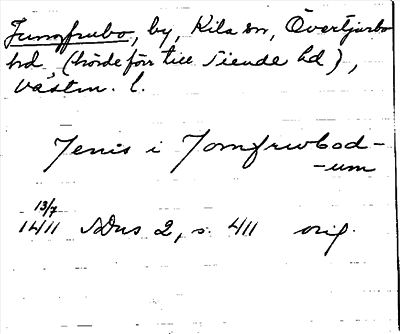 Jungfrubo, by, Kila sn, Övertjurbo
hd, (hörde förr till Siende hd),
Västm. l.
Jenis i Jomfrwbod-
-um
13/7
1411 SDns 2, s. 411 orig.